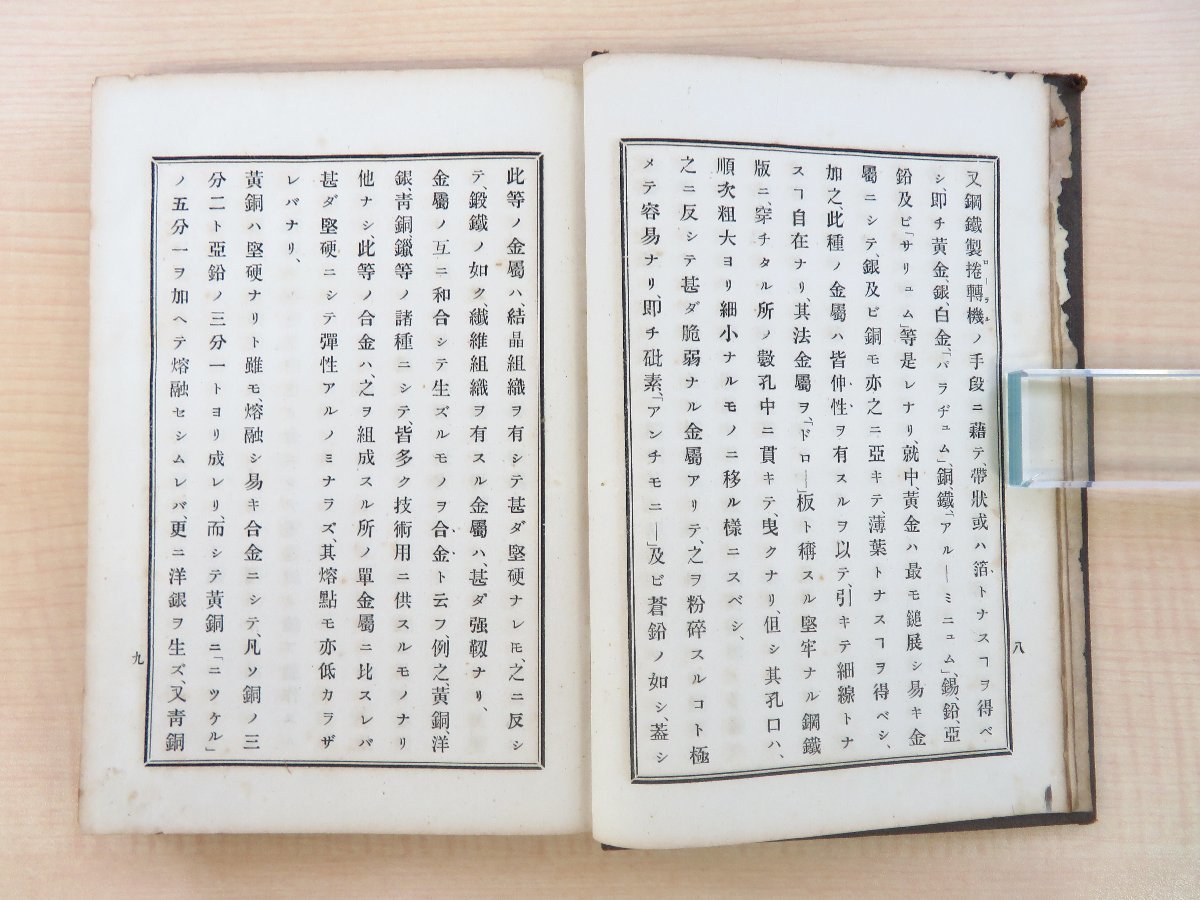 又鋼鐵製捲轉機ノ手段ニ藉テ、帶狀或ハ箔トナスヿヲ得ベ
シ、卽チ黃金、銀、白金、「パラヂュム」、銅、鐵、「アルーミニュム」、錫、鉛、亞
鉛及ビ「サリュム」等是レナリ、就中、黃金ハ最モ鎚展シ易キ金
屬ニシテ、銀及ビ銅モ亦之ニ亞キテ、薄葉トナスヿヲ得ベシ、
加之、此種ノ金屬ハ皆伸性ヲ有スルヲ以テ、引キテ細線トナ
スヿ自在ナリ、其法金屬ヲ、「ドロー」板ト稱スル堅牢ナル鋼鐵
版ニ、穿チタル所ノ數孔中ニ貫キテ、曳クナリ、但シ其孔口ハ、
順次粗大ヨリ細小ナルモノニ移ル樣ニスベシ、
之ニ反シテ甚ダ脆弱ナル金屬アリテ、之ヲ粉碎スルコト極
メテ容易ナリ、卽チ砒素、「アンチモニー」及ビ蒼鉛ノ如シ、蓋シ
八
此等ノ金屬ハ、結晶組織ヲ有シテ甚ダ堅硬ナレ𪜈、之ニ反シ
テ、鍛鐵ノ如ク、纖維組織ヲ有スル金屬ハ、甚ダ强靱ナリ、
金屬ノ互ニ和合シテ生ズルモノヲ合金ト云フ、例之、黃銅、洋
銀、靑銅、鑞等ノ諸種ニシテ、皆多ク技術用ニ供スルモノナリ
他ナシ此等ノ合金ハ、之ヲ組成スル所ノ單金屬ニ比スレバ
甚ダ堅硬ニシテ彈性アルノミナラズ、其熔點モ亦低カラザ
レバナリ、
黃銅ハ堅硬ナリト雖モ、熔融シ易キ合金ニシテ、凡ソ銅ノ三
分二ト亞鉛ノ三分一トヨリ成レリ、而シテ黃銅ニ「ニツケル」
ノ五分一ヲ加ヘテ熔融セシムレバ、更ニ洋銀ヲ生ズ、又靑銅
九